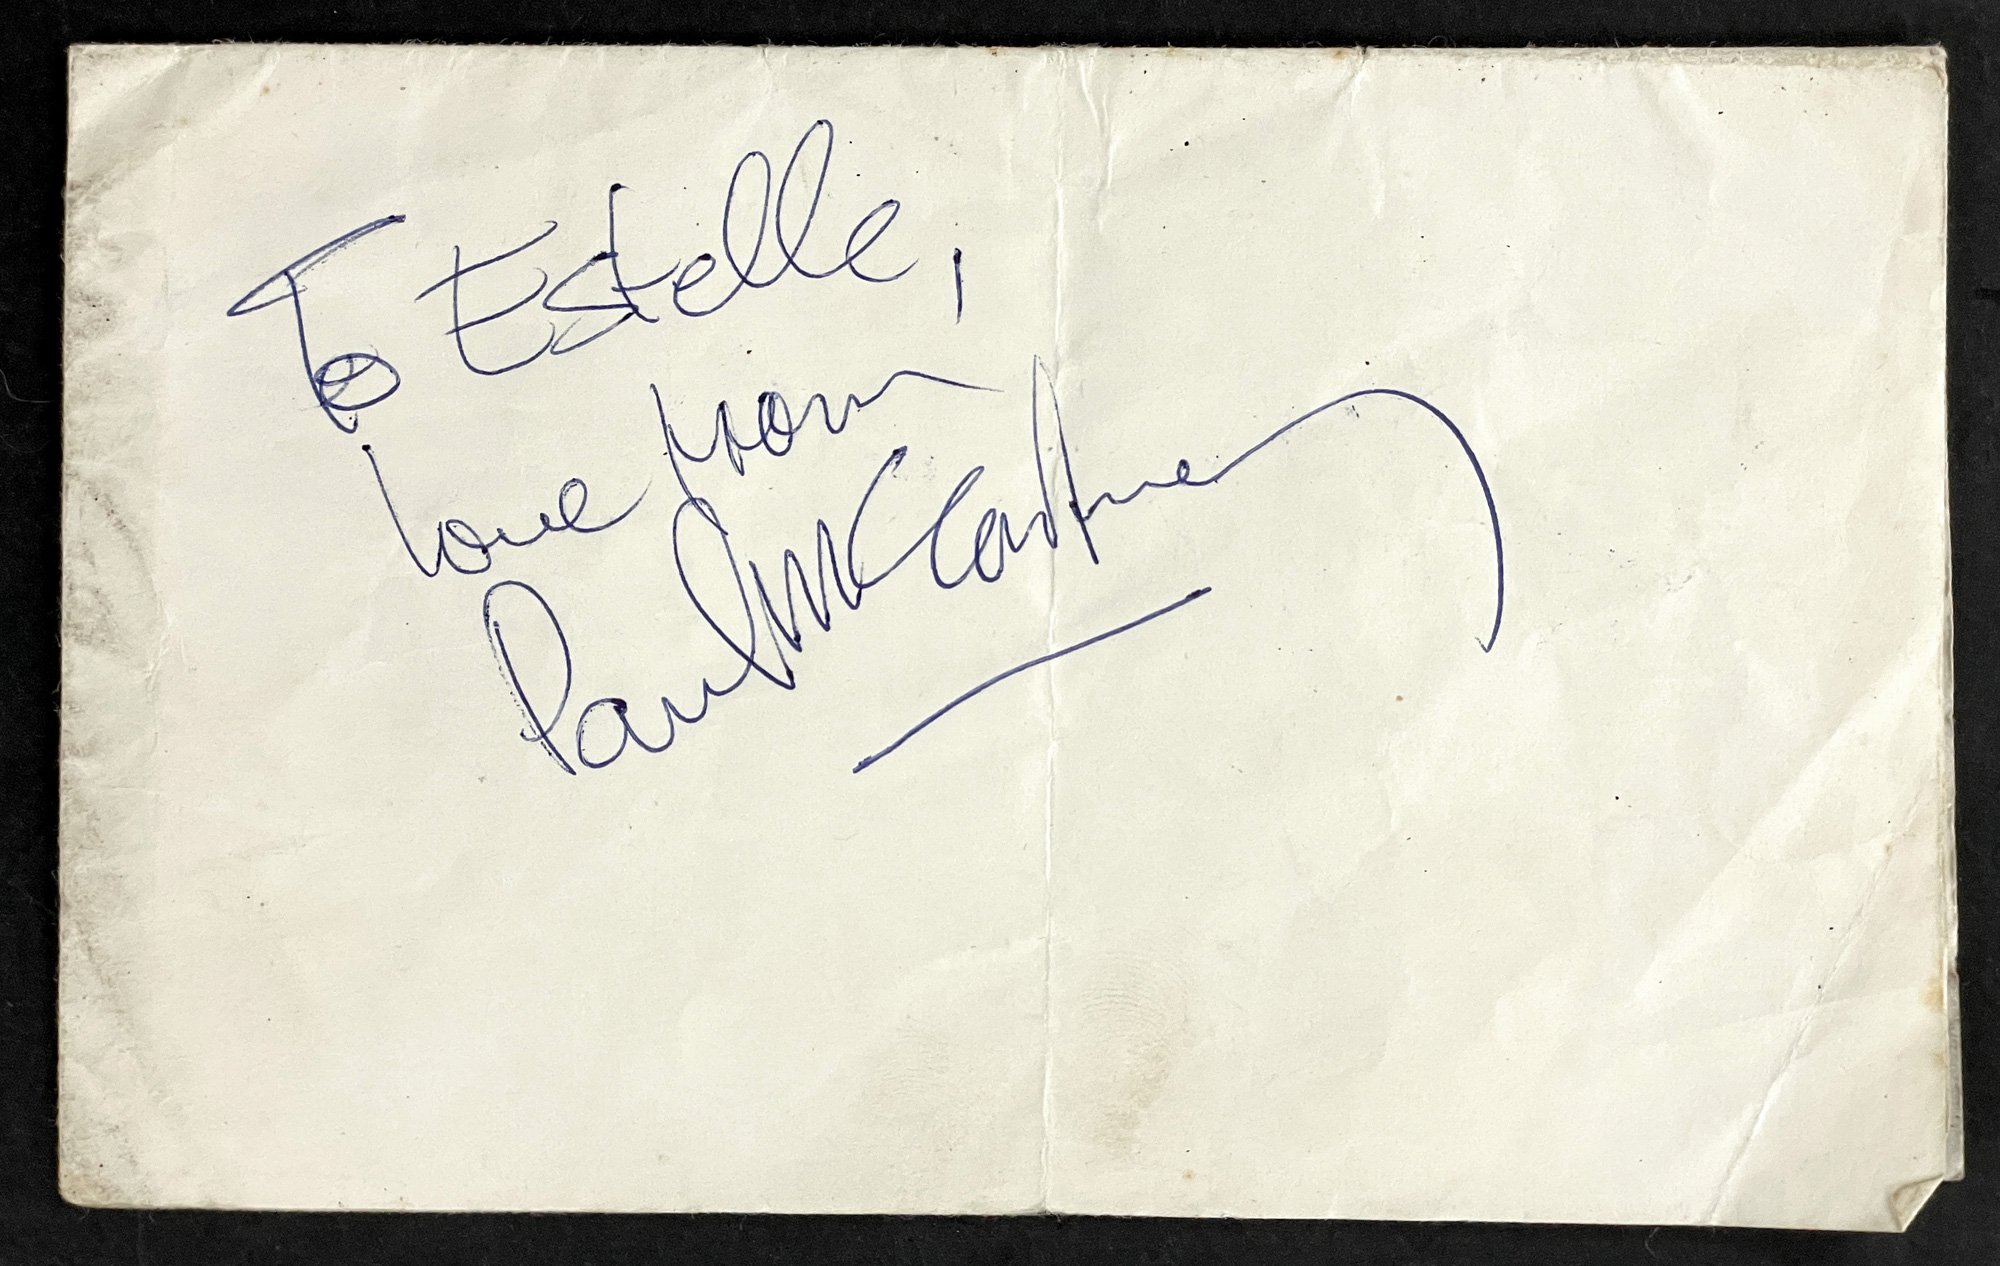 To Estelle,
love from
Paul McCartney